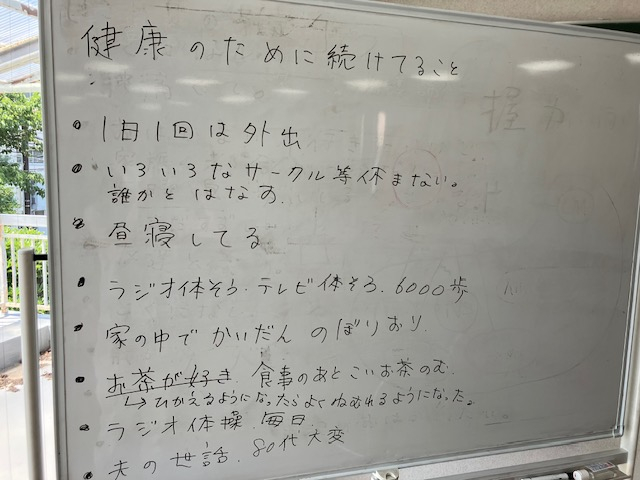 健康のために続けてること
• 1日1回は外出
• いろいろなサークル等休まない。
誰かとはなす.
• 昼寝してる
• ラジオ体そう. テレビ体そう. 6000歩
• 家の中でかいだんのぼりおり.
• お茶が好き. 食事のあとこいお茶のむ.
↳ひかえるようになったらよくねむれるようになった。
• ラジオ体操. 毎日.
• 夫の世話. 80代大変
握力